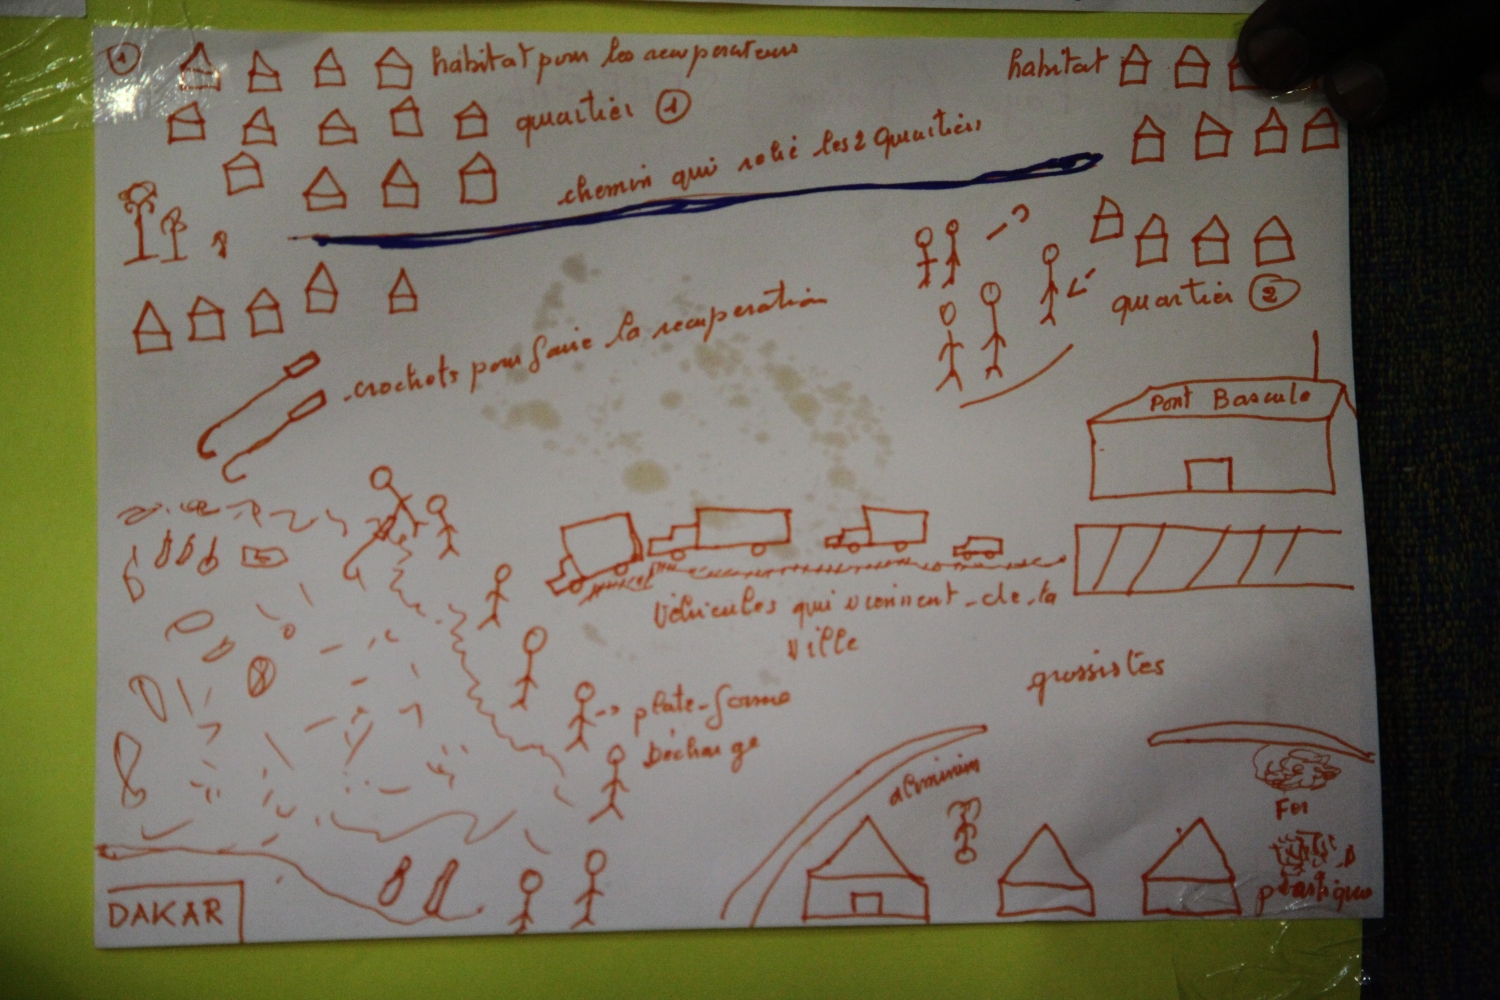 1
habitat pour les recuperateurs
habitat
quartier 1
chemin qui relié les 2 quartiers
quartier 2
crochets pour faire la recuperation
Pont Bascule
Véhicules qui viennent de la
ville
grossistes
plate-forme
Décharge
aluminim
Fer
plastique
DAKAR